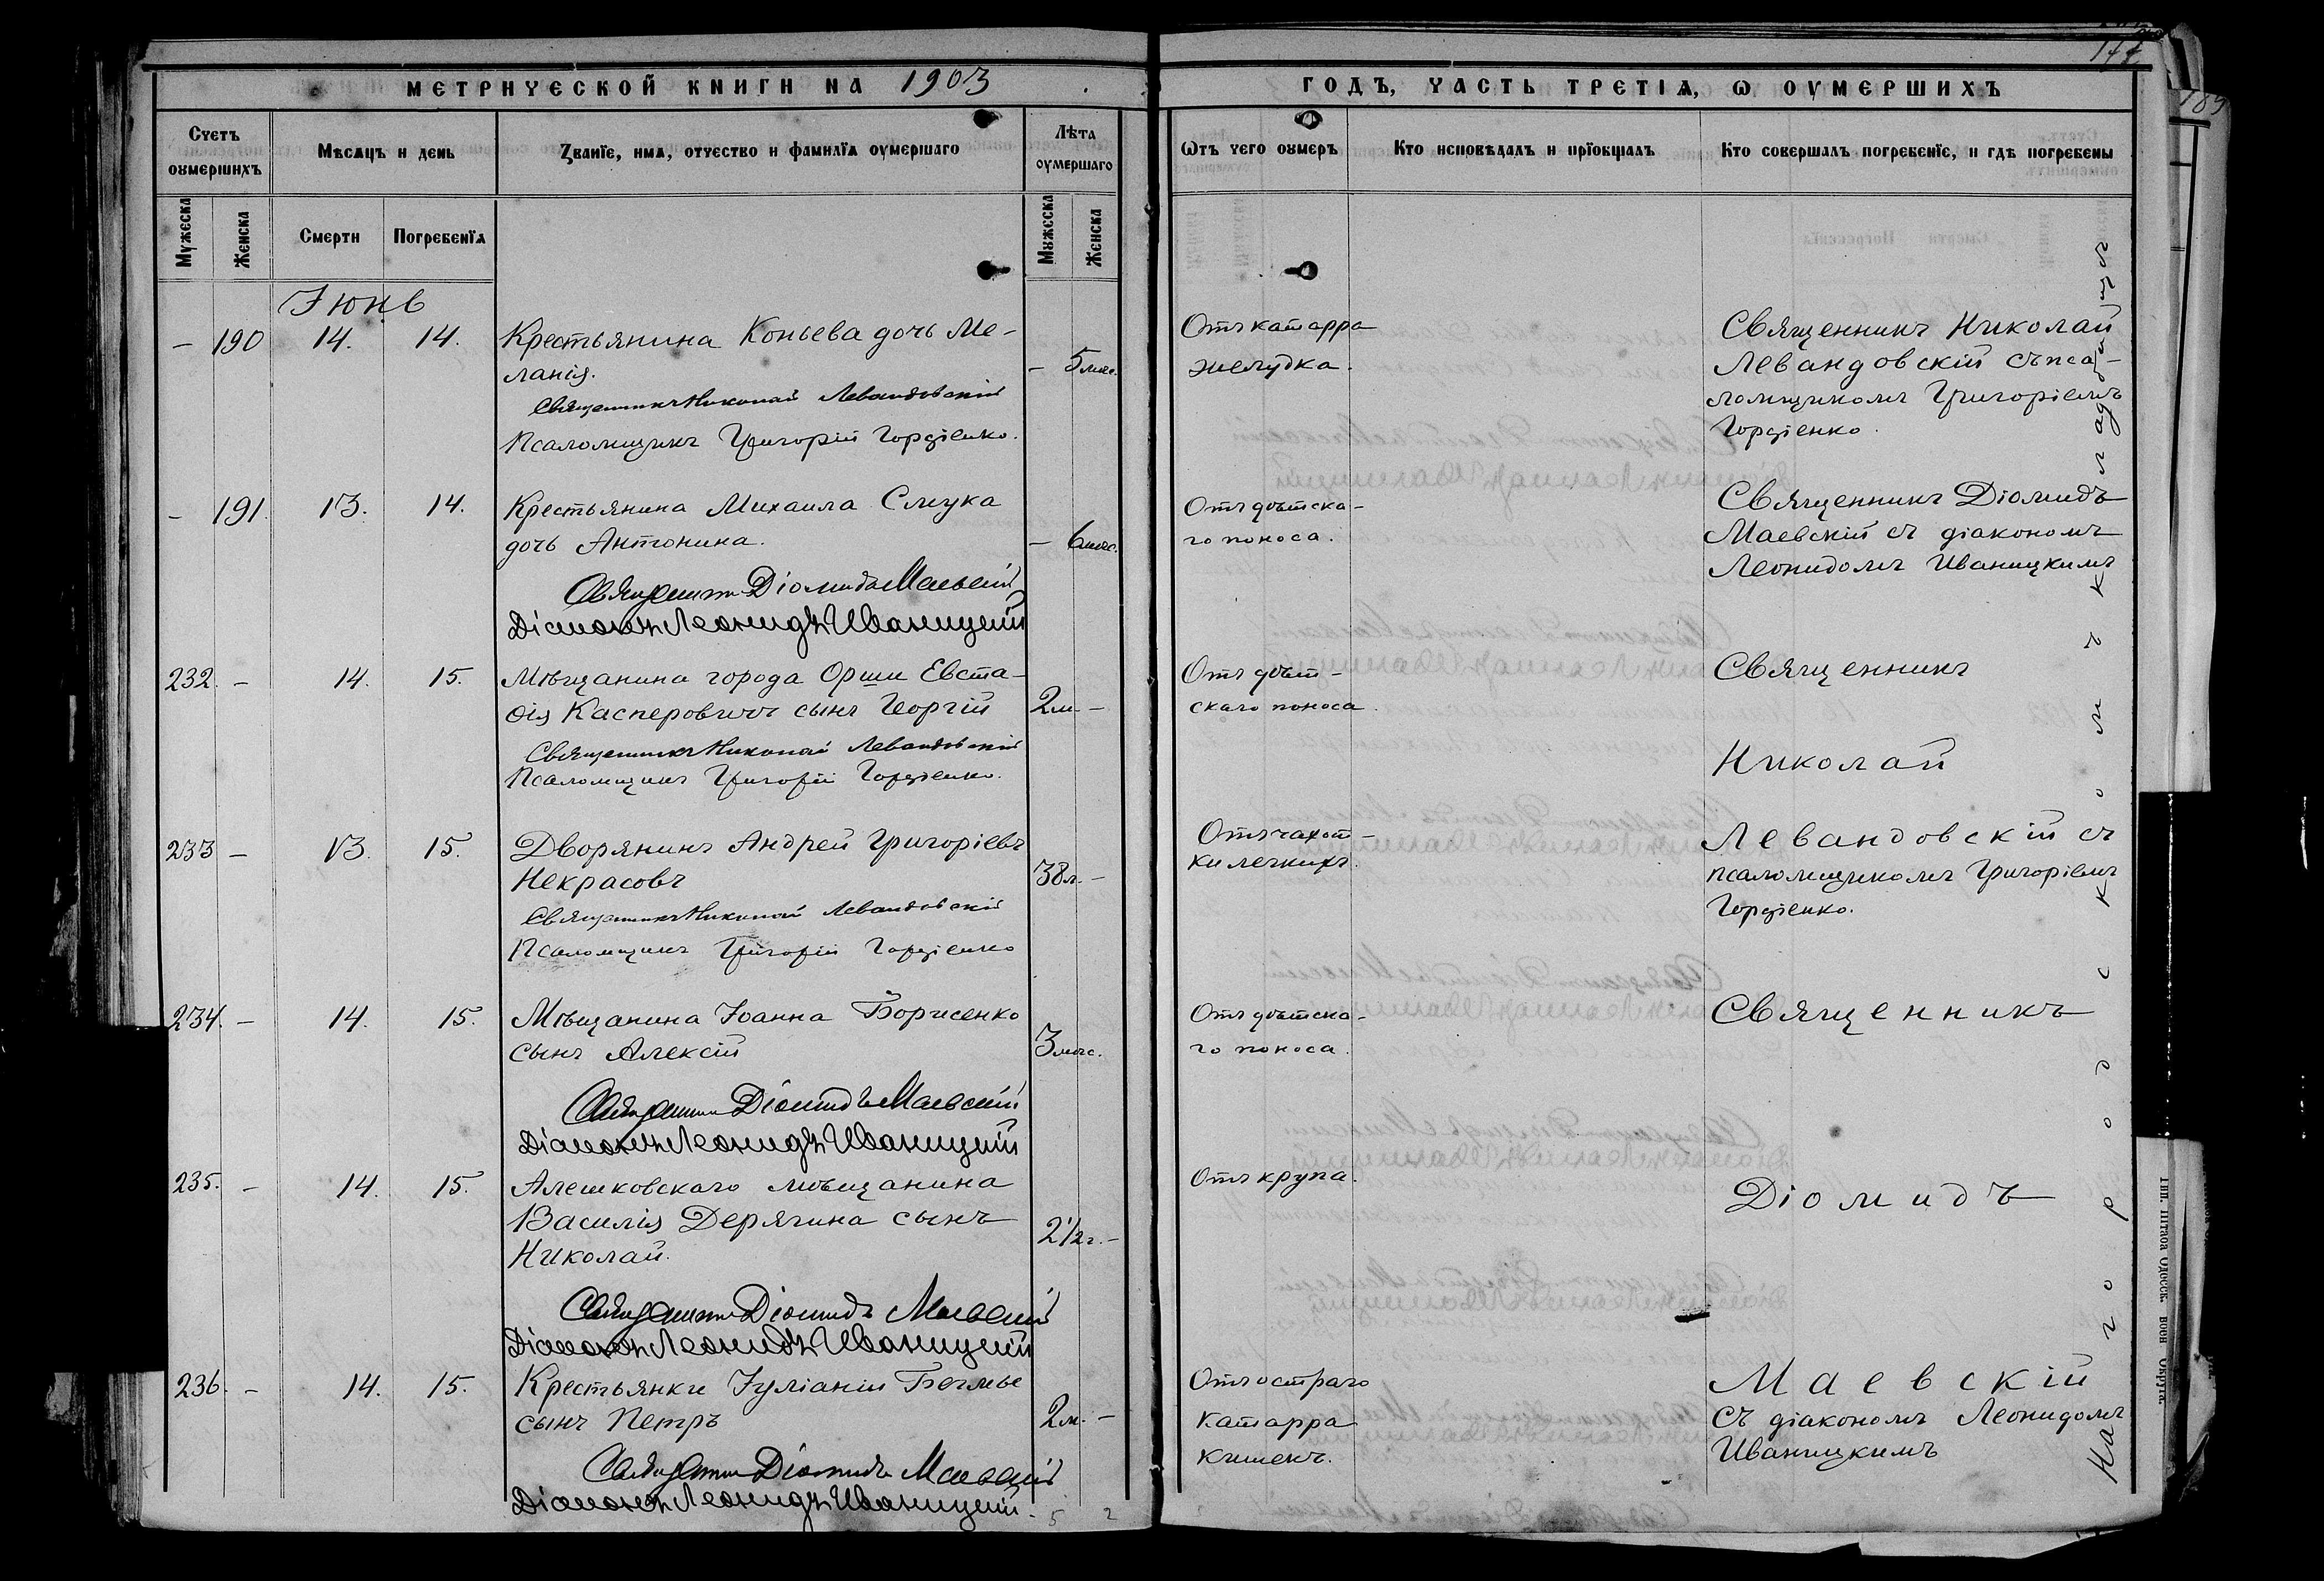 МЕТРИЧЕСКОЙ КНИГИ НА 1903
ГОДЪ, ЧАСТЬ ТРЕТІѦ, Ѡ ОУМЕРШИХЪ
Счетъ оумершихъ
Мѣсяцъ и день
Званїе, имѧ, отчество и фамилїѧ оумершаго
Лѣта оумершаго
Ѿтъ чего оумеръ
Кто исповѣдалъ и прїобщалъ
Кто совершалъ погребенїе, и гдѣ погребены
Мужеска
Женска
Смерти
Погребенїѧ
Мужеска
Женска
Іюнь
– 190 14. 14. Крестьянина Коньева дочь Ме-
ланія. – 5 мѣс.
Священникъ Николай Левандовскій
Псаломщикъ Григорій Гордіенко.
Отъ катарра
желудка.
Священникъ Николай
Левандовскій съ пса-
ломщикомъ Григоріемъ
Гордіенко.
– 191. 13. 14. Крестьянина Михаила Смука
дочь Антонина. – 6 мѣс.
Священникъ Діомидъ Маевскій
Діаконъ Леонидъ Иваницкій
Отъ дѣтска-
го поноса.
Священникъ Діомидъ
Маевскій съ діакономъ
Леонидомъ Иваницкимъ
232. – 14. 15. Мѣщанина города Орши Евста-
фія Касперовичъ сынъ Георгій 2 м. –
Священникъ Николай Левандовскій
Псаломщикъ Григорій Гордіенко.
Отъ дѣт-
скаго поноса.
Священникъ
Николай
233 – 13. 15. Дворянинъ Андрей Григоріевъ
Некрасовъ 38 л. –
Священникъ Николай Левандовскій
Псаломщикъ Григорій Гордіенко
Отъ чахот-
ки легкихъ.
Левандовскій съ
псаломщикомъ Григоріемъ
Гордіенко.
234. – 14. 15. Мѣщанина Іоанна Борисенко
сынъ Алексій 3 мѣс.
Священникъ Діомидъ Маевскій
Діаконъ Леонидъ Иваницкій
Отъ дѣтска-
го поноса.
Священникъ
235. – 14. 15. Алешковскаго мѣщанина
Василія Дерягина сынъ
Николай. 2 1/2 г. –
Священникъ Діомидъ Маевскій
Діаконъ Леонидъ Иваницкій
Отъ крупа.
Діомидъ
236. – 14. 15. Крестьянки Іуліаніи
сынъ Петръ 2 м. –
Священникъ Діомидъ Маевскій
Діаконъ Леонидъ Иваницкій.
5 2
Отъ остраго
катарра
кишекъ.
Маевскій
съ діакономъ Леонидомъ
Иваницкимъ
На городскомъ кладбищѣ
189